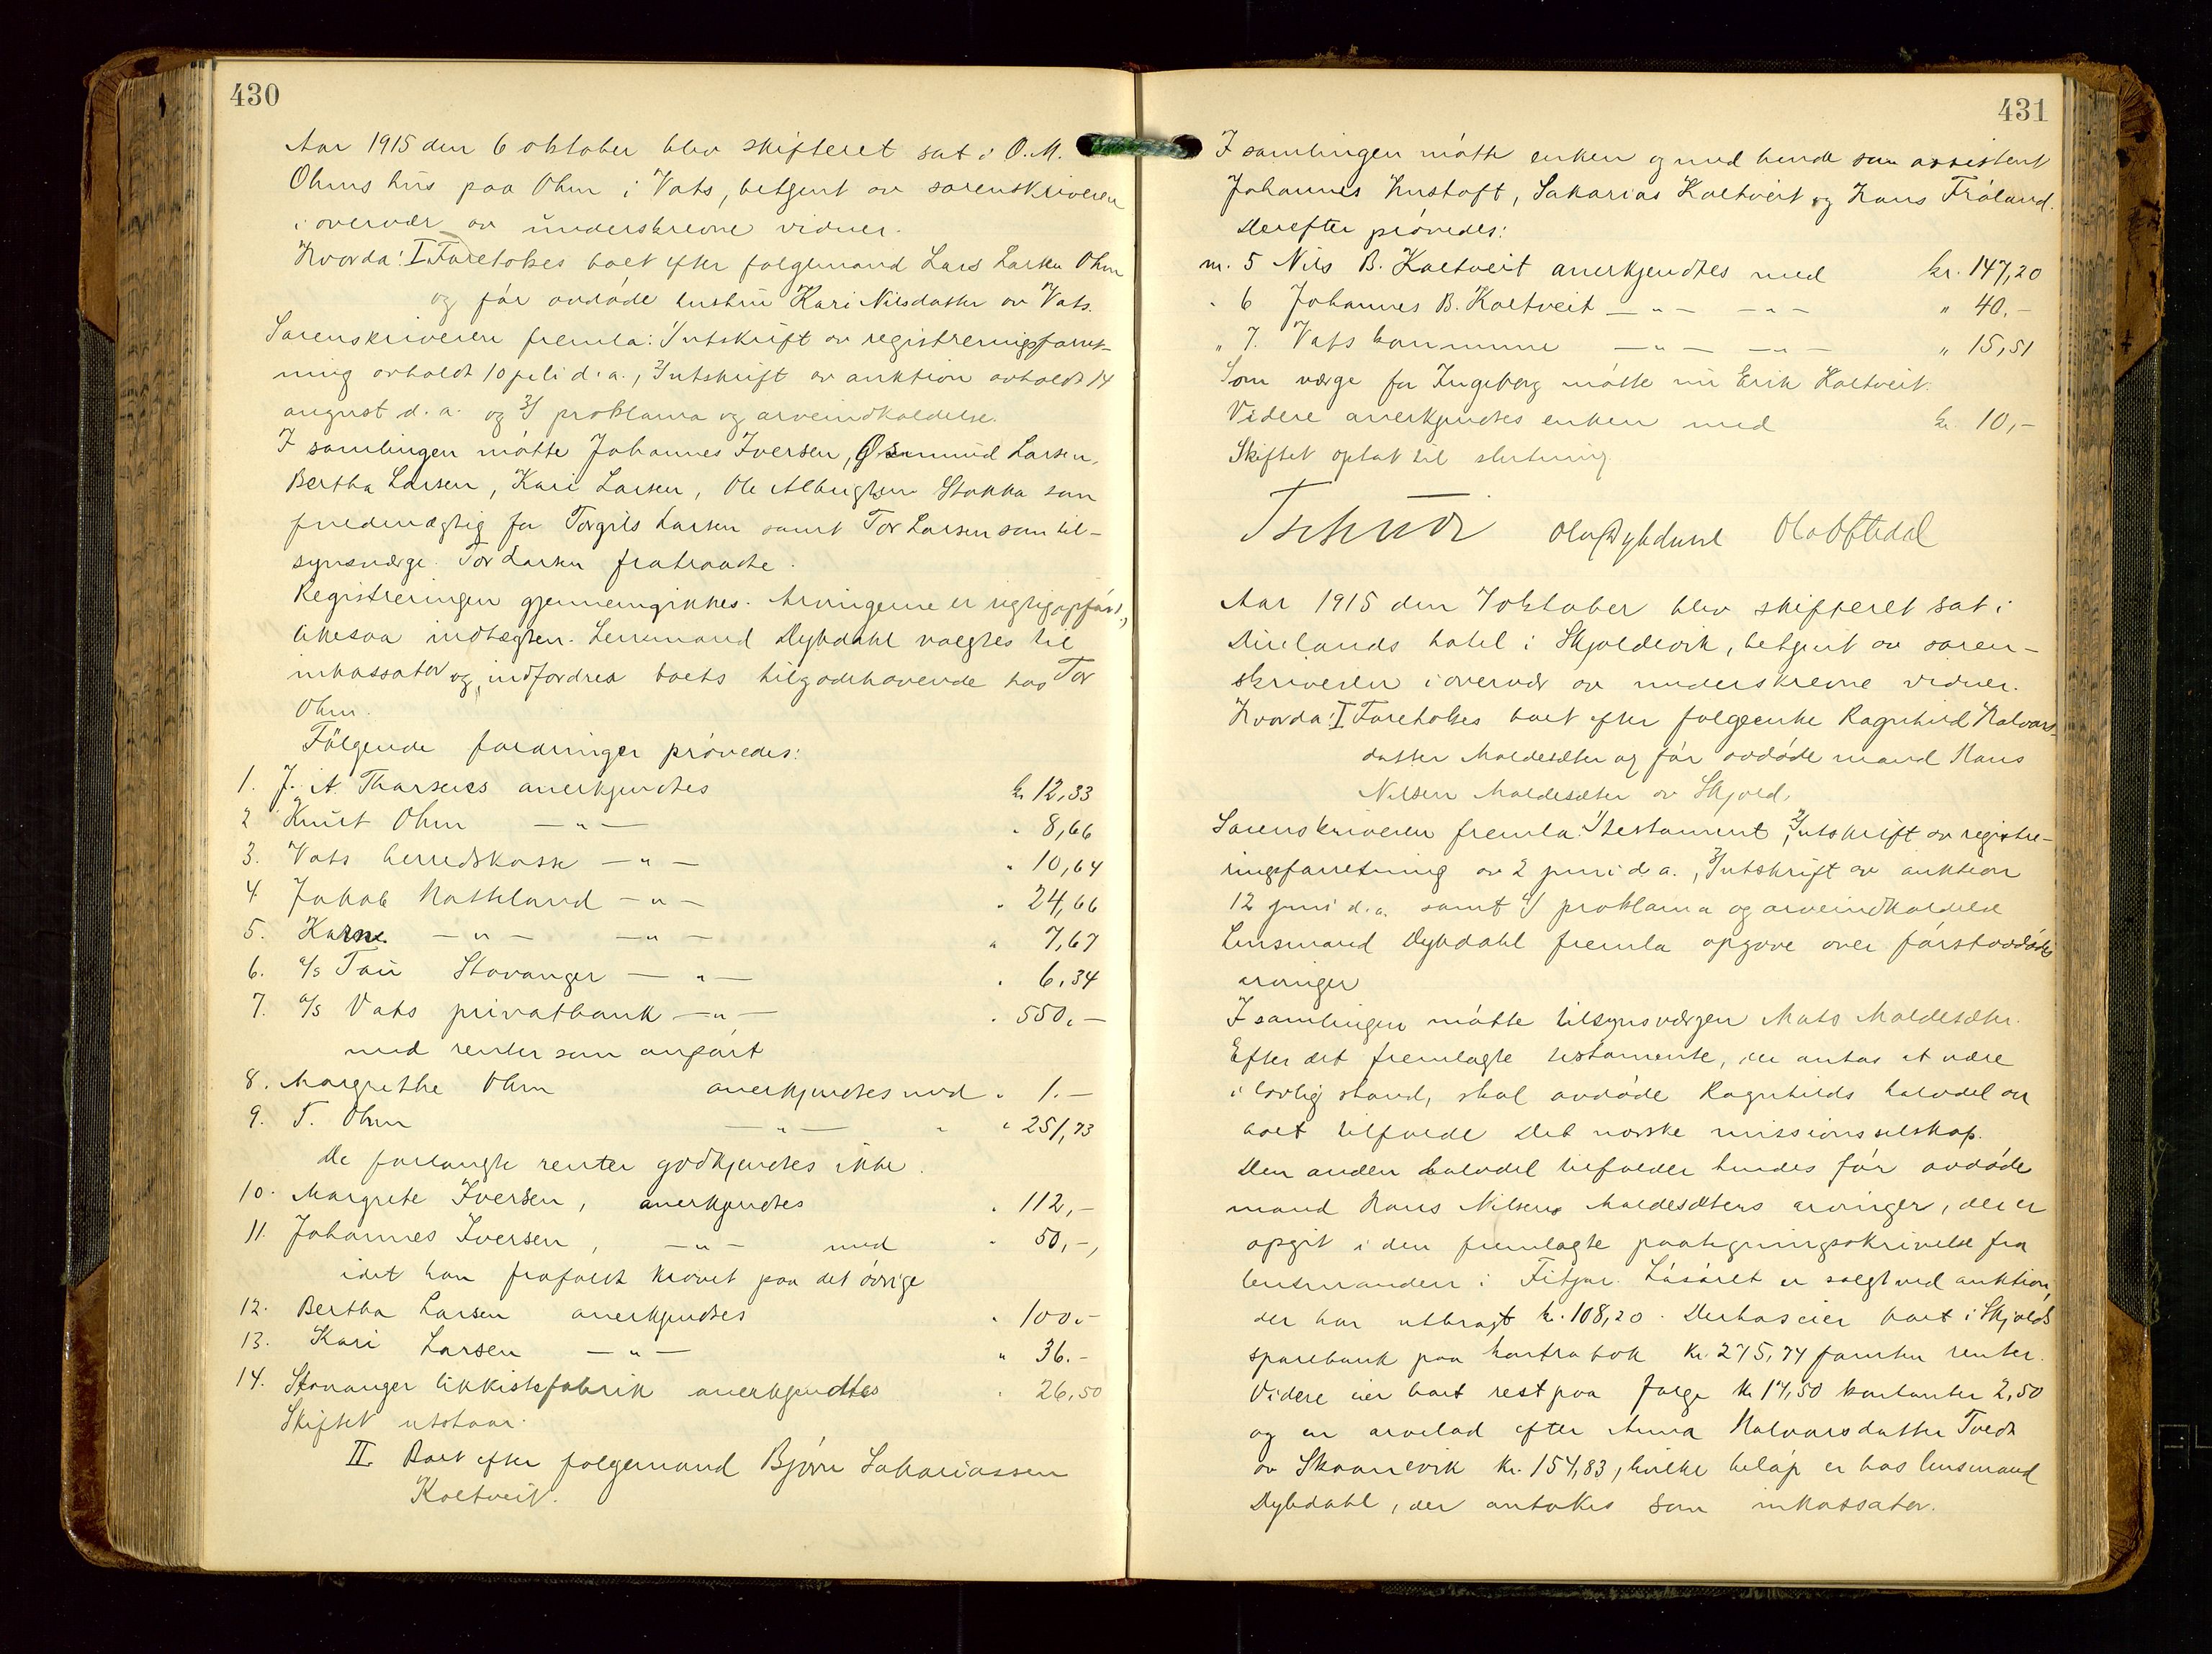 430
Aar 1915 den 6 oktober blev skifteret sat i O. M.
Ohms hus paa Ohm i Vats, betjent av sorenskriveren
i overvær av underskrevne vidner.
Hvorda: I Foretokes boet efter følgemand Lars Larsen Ohm
og før avdøde hustru Kari Nilsdatter av Vats.
Sorenskriveren fremla: 1/ utskrift av registreringsforret-
ning avholdt 10 juli d. a., 2/ utskrift av auktion avholdt 14
august d. a. og 3/ proklama og arveindkaldelse.
I samlingen møtte Johannes Iversen, Osmund Larsen,
Bertha Larsen, Kari Larsen, Ole Albrigtsen Stakka som
fuldmægtig for Torgils Larsen samt Tor Larsen som til-
synsværge. Tor Larsen fratraadte.
Registreringen gjennemgikkes. Arvingerne er rigtig opført,
likesaa indtægten. Lensmand Dybdahl valgtes til
inkassator og indfordrer boets tilgodehavende hos Tor
Ohm.
Følgende fordringer prøvedes:
1. J. A. Thorsens anerkjendtes kr. 12,33
2 Knut Ohm — " — " 8,66
3. Vats herredskasse — " — " 10,64
4 Jakob Natteland — " — " 24,66
5. Karne — " — — " — " 7,67
6. a/s Tau Stavanger — " — " 6,34
7. a/s Vats privatbank — " — " 550,—
med renter som anført
8. Margrethe Ohm anerkjendtes med " 1.—
9. T. Ohm — " — " " 251,73
De forlangte renter godkjendtes ikke.
10. Margrete Iversen, anerkjendtes " 112,—
11. Johannes Iversen, — " — med " 50,—,
idet han frafaldt kravet paa det øvrige
12. Bertha Larsen anerkjendtes " 100.-
13. Kari Larsen — " — " 36.-
14. Stavanger likkistefabrik anerkjendtes " 26,50
Skiftet utstaar.
II. Boet efter følgemand Bjørn Sakariassen
Koltveit.
431
I samlingen møtte enken og med hende som assistent
Johannes Hustoft, Sakarias Koltveit og Hans Frøland.
Derefter prøvedes:
nr. 5 Nils B. Koltveit anerkjendtes med kr. 147,20
" 6 Johannes B. Koltveit — " — — " — " 40.-
" 7. Vats kommune — " — — " — " 15,51
Som værge for Ingeborg møtte nu Erik Koltveit.
Videre anerkjendtes enken med kr 10,-
Skiftet optat til slutning
Tschudi Ola Dybdahl Ola Oftedal
Aar 1915 den 7 oktober blev skifteret sat i
Duelands hotel i Skjoldevik, betjent av soren-
skriveren i overvær av underskrevne vidner.
Hvorda: I Foretokes boet efter følgeenke Ragnhild Halvors-
datter Moldesæter og før avdøde mand Hans
Nilsen Moldesæter av Skjold.
Sorenskriveren fremla: 1/ testament, 2/ utskrift av registre-
ringsforretning av 2 juni d a., 3/ utskrift av auktion
12 juni d. a. samt 4/ proklama og arveindkaldelse
Lensmand Dybdahl fremla opgave over førstavdødes
arvinger
I samlingen møtte tilsynsværgen Mats Moldesæter.
Efter det fremlagte testamente, der antas at være
i lovlig stand, skal avdøde Ragnhilds halvdel av
boet tilfalde Det norske missionsselskap.
Den anden halvdel tilfalder hendes før avdøde
mand Hans Nilsens Moldesæters arvinger, der er
opgit i den fremlagte paategningsskrivelse fra
lensmanden i Fitjar. Løsøret er solgt ved auktion,
der har utbragt kr. 108,20. Derhos eier boet i Skjolds
sparebank paa kontrabok kr. 275,74 foruten renter.
Videre eier boet rest paa folge kr 17,50 kontanter 2,50
og en arvelod efter Anna Halvorsdatter Tvedt
av Skaanevik kr. 154,83, hvilke beløp er hos lensmand
Dybdahl, der antokes som inkassator.